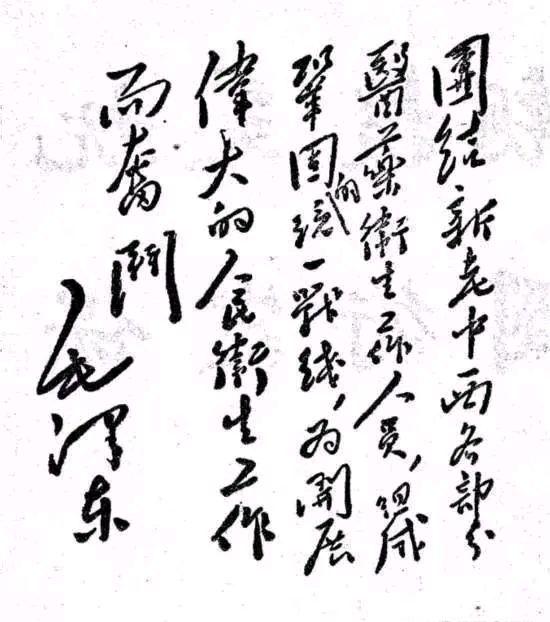 團結新老中西各部分
醫藥衛生工作人員，組成
鞏固的統一戰綫，為開展
偉大的人民衛生工作
而奮鬥
毛澤東